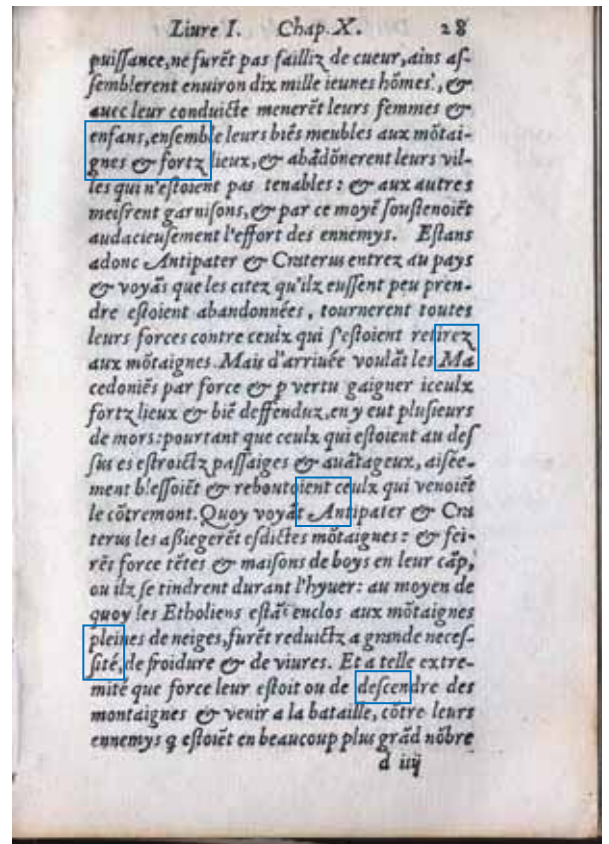 Liure I. Chap. X. 28
puiſſance, ne furēt pas failliz de cueur, ains aſ-
ſemblerent enuiron dix mille ieunes hōmes, &
auec leur conduicte menerēt leurs femmes &
enfans, enſemble leurs biēs meubles aux mōtai-
gnes & fortz lieux, & abādōnerent leurs vil-
les qui n'eſtoient pas tenables : & aux autres
meiſrent garniſons, & par ce moyē ſouſtenoiēt
audacieuſement l'effort des ennemys. Eſtans
adonc Antipater & Craterus entrez au pays
& voyās que les citez qu'ilz euſſent peu pren-
dre eſtoient abandonnées, tournerent toutes
leurs forces contre ceulx qui ſ'eſtoient retirez
aux mōtaignes. Mais d'arriuée voulāt les Ma
cedoniēs par force & p vertu gaigner iceulx
fortz lieux & biē deffenduz, en y eut pluſieurs
de mors : pourtant que ceulx qui eſtoient au deſ
ſus es eſtroictz paſſaiges & auātageux, aiſée-
ment bleſſoiēt & reboutoient ceulx qui venoiēt
le cōtremont. Quoy voyāt Antipater & Cra
terus les aßiegerēt eſdictes mōtaignes : & fei-
rēt force tētes & maiſons de boys en leur cāp,
ou ilz ſe tindrent durant l'hyuer : au moyen de
quoy les Etholiens eſtās enclos aux mōtaignes
pleines de neiges, furēt reduictz a grande neceſ-
ſité, de froidure & de viures. Et a telle extre-
mité que force leur eſtoit ou de deſcendre des
montaignes & venir a la bataille, cōtre leurs
ennemys q eſtoiēt en beaucoup plus grād nōbre
d iiij